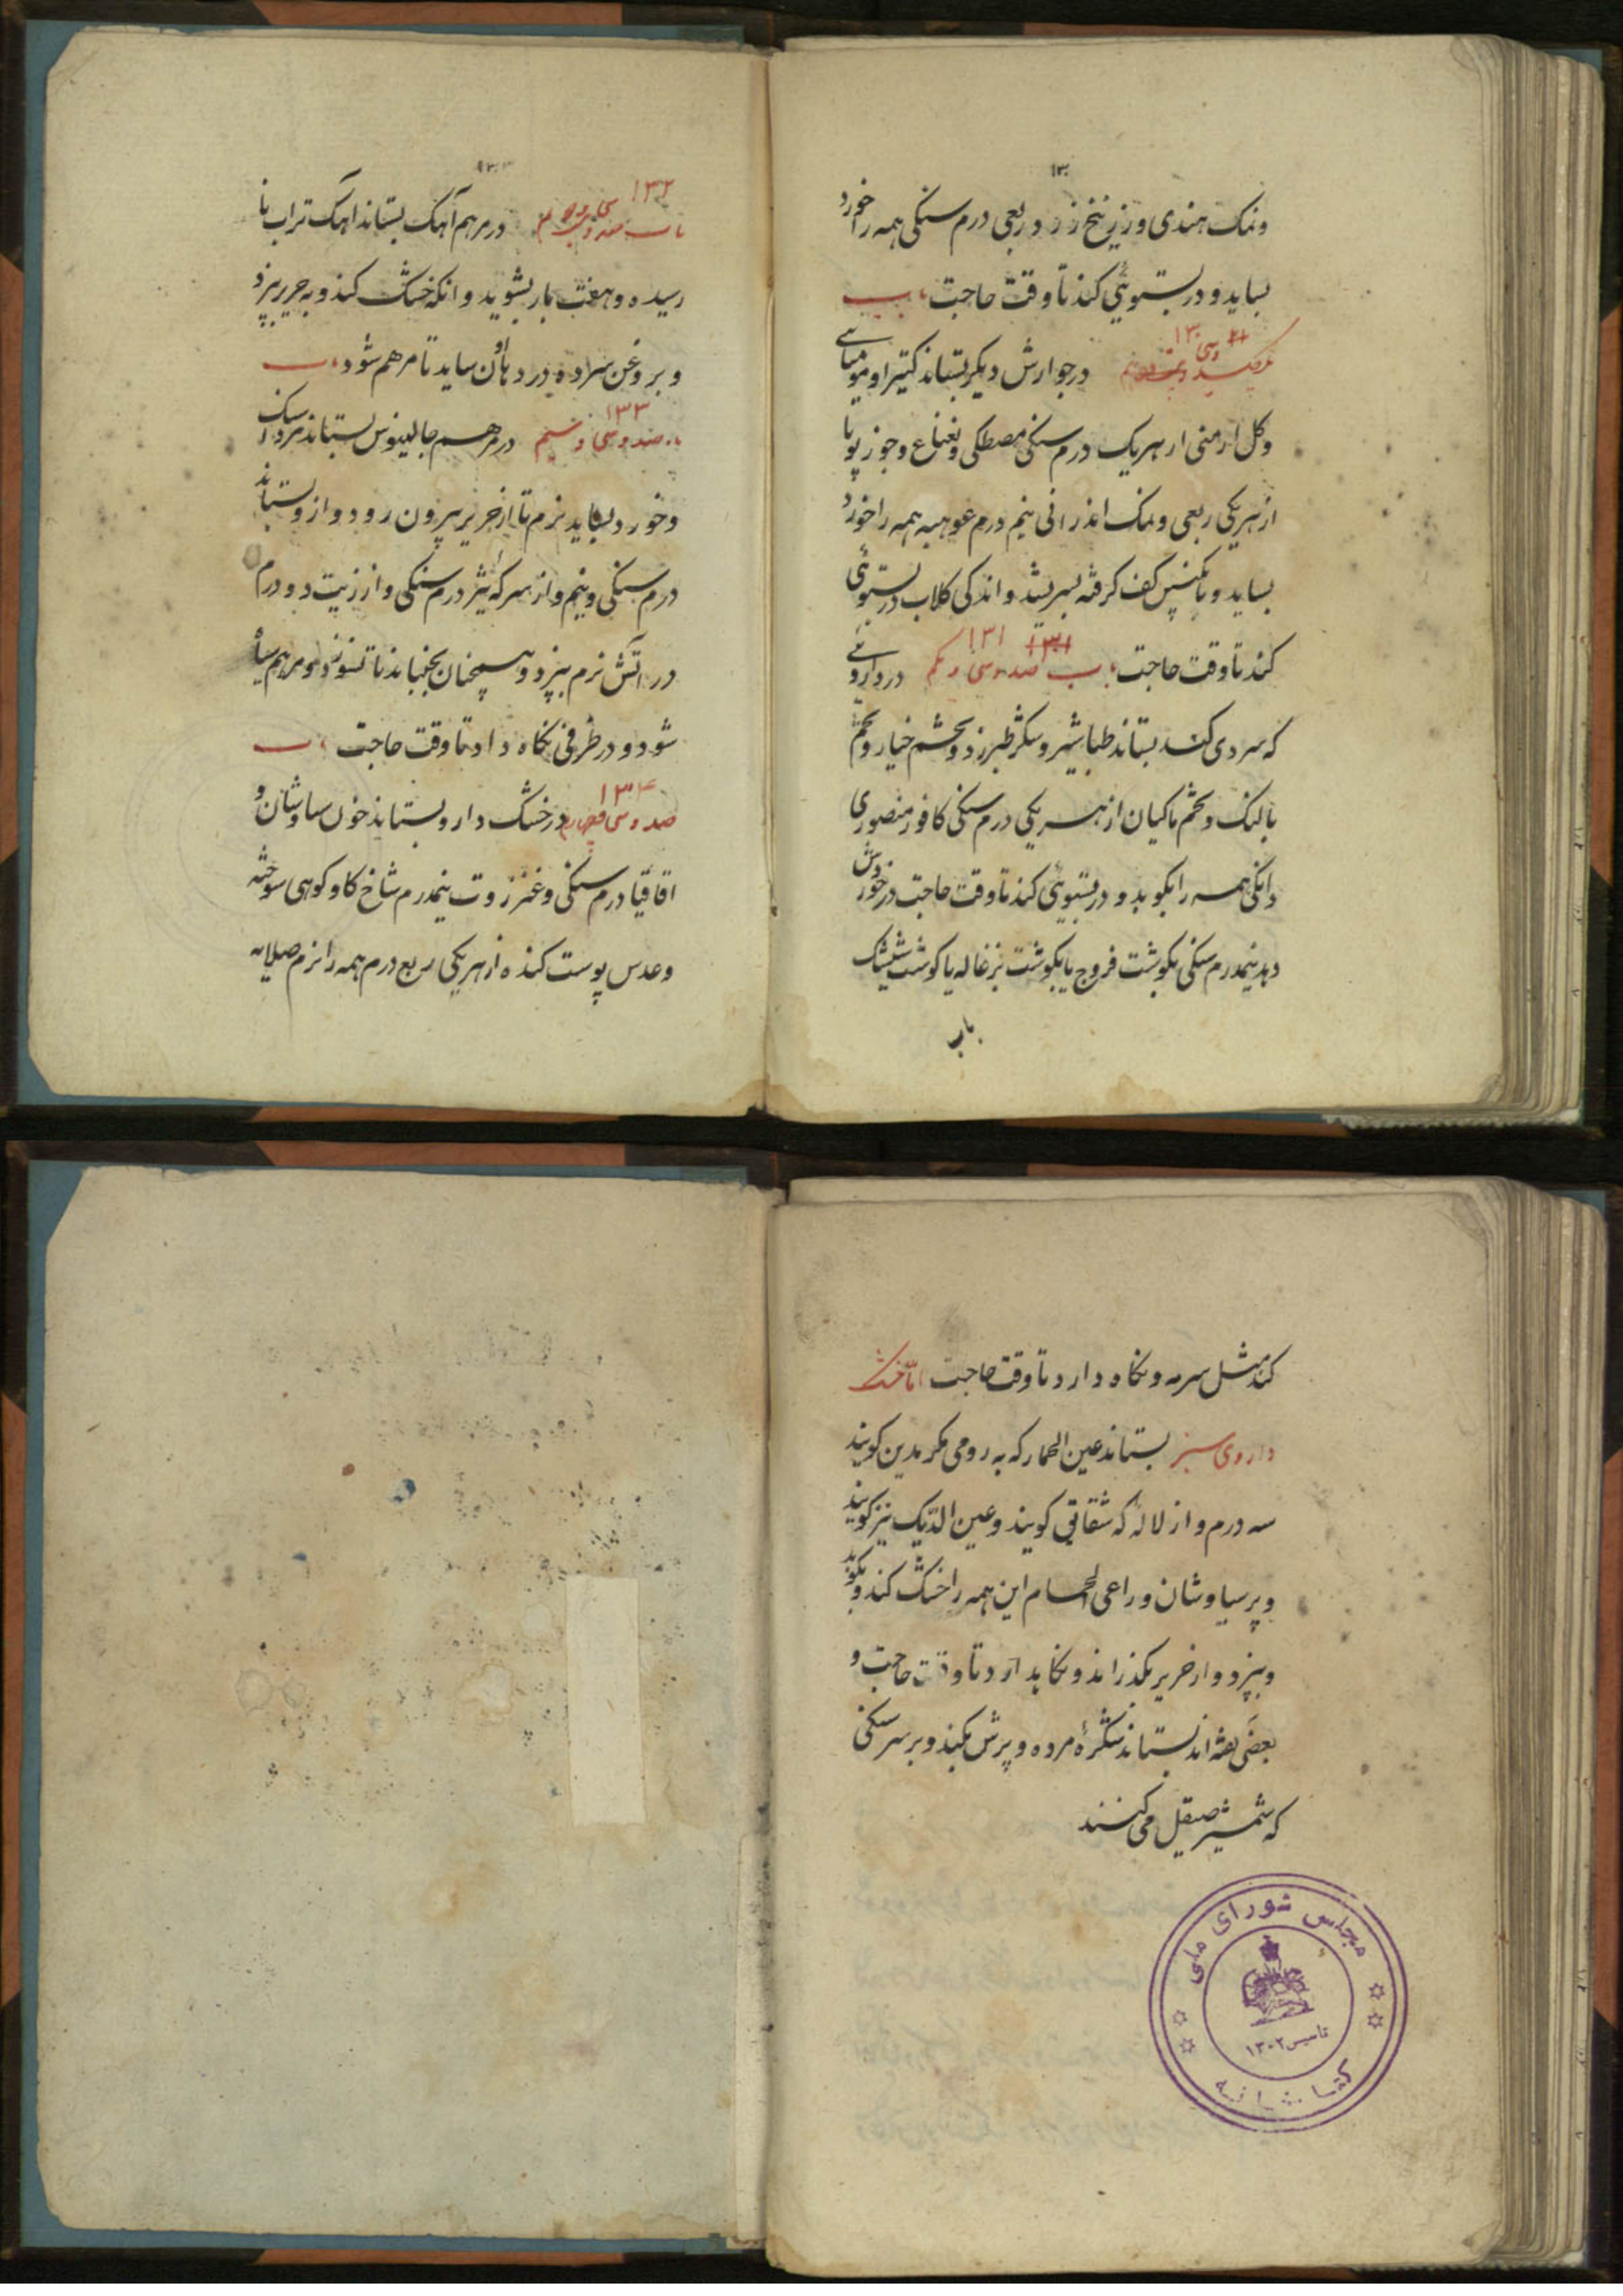 ۱۳۰
ونمک هندی وزرنیخ زرد ربعی درم سنکی همه را خورد
بساید و در بستوئی کند تا وقت حاجت باب
۱۳۰
یکصد وسی در جوارش دیکر بستاند کتیرا و مومیائی
وکل ارمنی از هریک درم سنکی مصطکی ونعناع وجوز بویا
از هریکی ربعی ونمک اندرانی نیم درم همه را خورد
بساید و بانکبین کف کرفته بسریشد و اندکی کلاب در بستوئی
۱۳۱ ۱۳۱
کند تا وقت حاجت باب صد وسی ویکم در داروئی
که سردی کند بستاند طباشیر وشکر طبرزد وتخم خیار وتخم
بالنک وتخم ماکیان از هر یکی درم سنکی کافور منصوری
دانکی همه را بکوبد و در بستوئی کند تا وقت حاجت در خورش
دهد نیمدرم سنکی بکوشت فروج یا بکوشت بزغاله یا کوشت شیشک
باب
۱۳۲
باب صد وسی ودوم در مرهم آهک بستاند آهک تراب نا
رسیده وهفت بار بشوید وانکه خشک کند و به حریر بیزد
وبروغن در هاون ساید تا مرهم شود باب
۱۳۳
صد وسی وسیم در مرهم جالینوس بستاند مرداسنک
وخورد بساید نرم تا از حریر بیرون رود و از و بستاند
درم سنکی ونیم و از سرکه نیز درم سنکی و از زیت دو درم
در آتش نرم بپزد و همچنان بجنباند تا نسوزد و مرهم سیاه
شود و در ظرفی نکاه دارد تا وقت حاجت باب
۱۳۴
صد وسی وچهارم در خشک دارو بستاند خون سیاوشان و
اقاقیا درم سنکی و عنزروت نیمدرم شاخ کاو کوهی سوخته
وعدس پوست کنده از هریکی ربع درم همه را نرم صلایه
کند مثل سرمه و نکاه دارد تا وقت حاجت اما خشک
داروی سبز بستاند عین الحمار که به رومی کویند
سه درم و از لاله که شقایق کویند و عین الدیک نیز کویند
و پرسیاوشان و راعی الحمام این همه را خشک کند و بکوبد
وبیزد و از حریر بکذراند و نکاهدارد تا وقت حاجت و
بعضی کفته اند بستاند شکره مرده و پرش بکند و بر سر سنکی
که شمشیر صیقل می کنند
مجلس شورای ملی
تاسیس ۱۳۰۲
کتابخانه